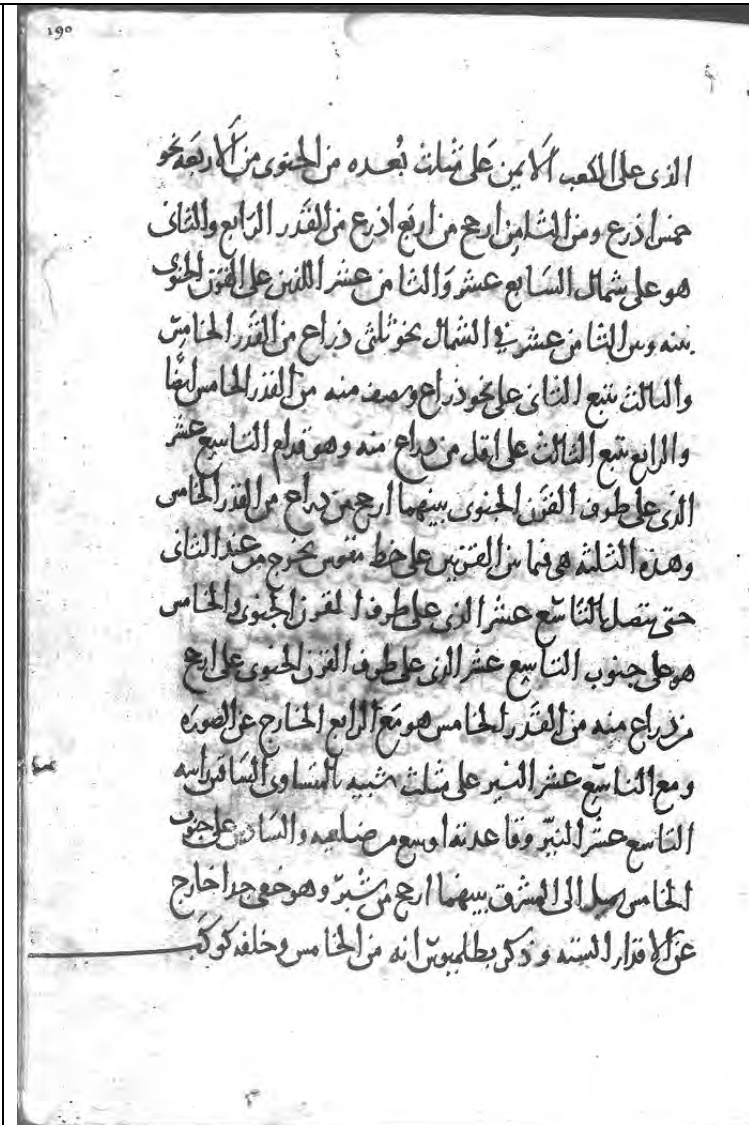 190
الذى على الكعب الايمن على مثلث بعده من الجنوى من الاربعه نحو
خمس اذرع ومن الثامن ارجح من اربع اذرع من القدر الرابع والثانى
هو على شمال السابع عشر والثامن عشر اللذين على القرن الجنوى
بينه وبين الثامن عشر فى الشمال نحو ثلثى ذراع من القدر الخامس
والثالث يتبع الثانى على نحو ذراع ونصف منه من القدر الخامس ايضا
والرابع يتبع الثالث على اقل من ذراع منه وهو قدام التاسع عشر
الذى على طرف القرن الجنوى بينهما ارجح من ذراع من القدر الخامس
وهذه الثلثه هى فيما بين القرنين على خط مقوس يخرج من عند الثانى
حتى يتصل بالتاسع عشر الذى على طرف القرن الجنوى والخامس
هو على جنوب التاسع عشر الذى على طرف القرن الجنوى على ارجح
من ذراع منه من القدر الخامس هو مع الرابع الخارج عن الصوره
ومع التاسع عشر النير على مثلث شبيه بالمتساوى الساقين راسه
التاسع عشر النير وقاعدته اوسع من ضلعيه والسادس على جنوب
الخامس يميل الى المشرق بينهما ارجح من شبر وهو خفى جدا خارج
عن الاقدار الستة وذكر بطلميوس انه من الخامس وخلفه كوكب